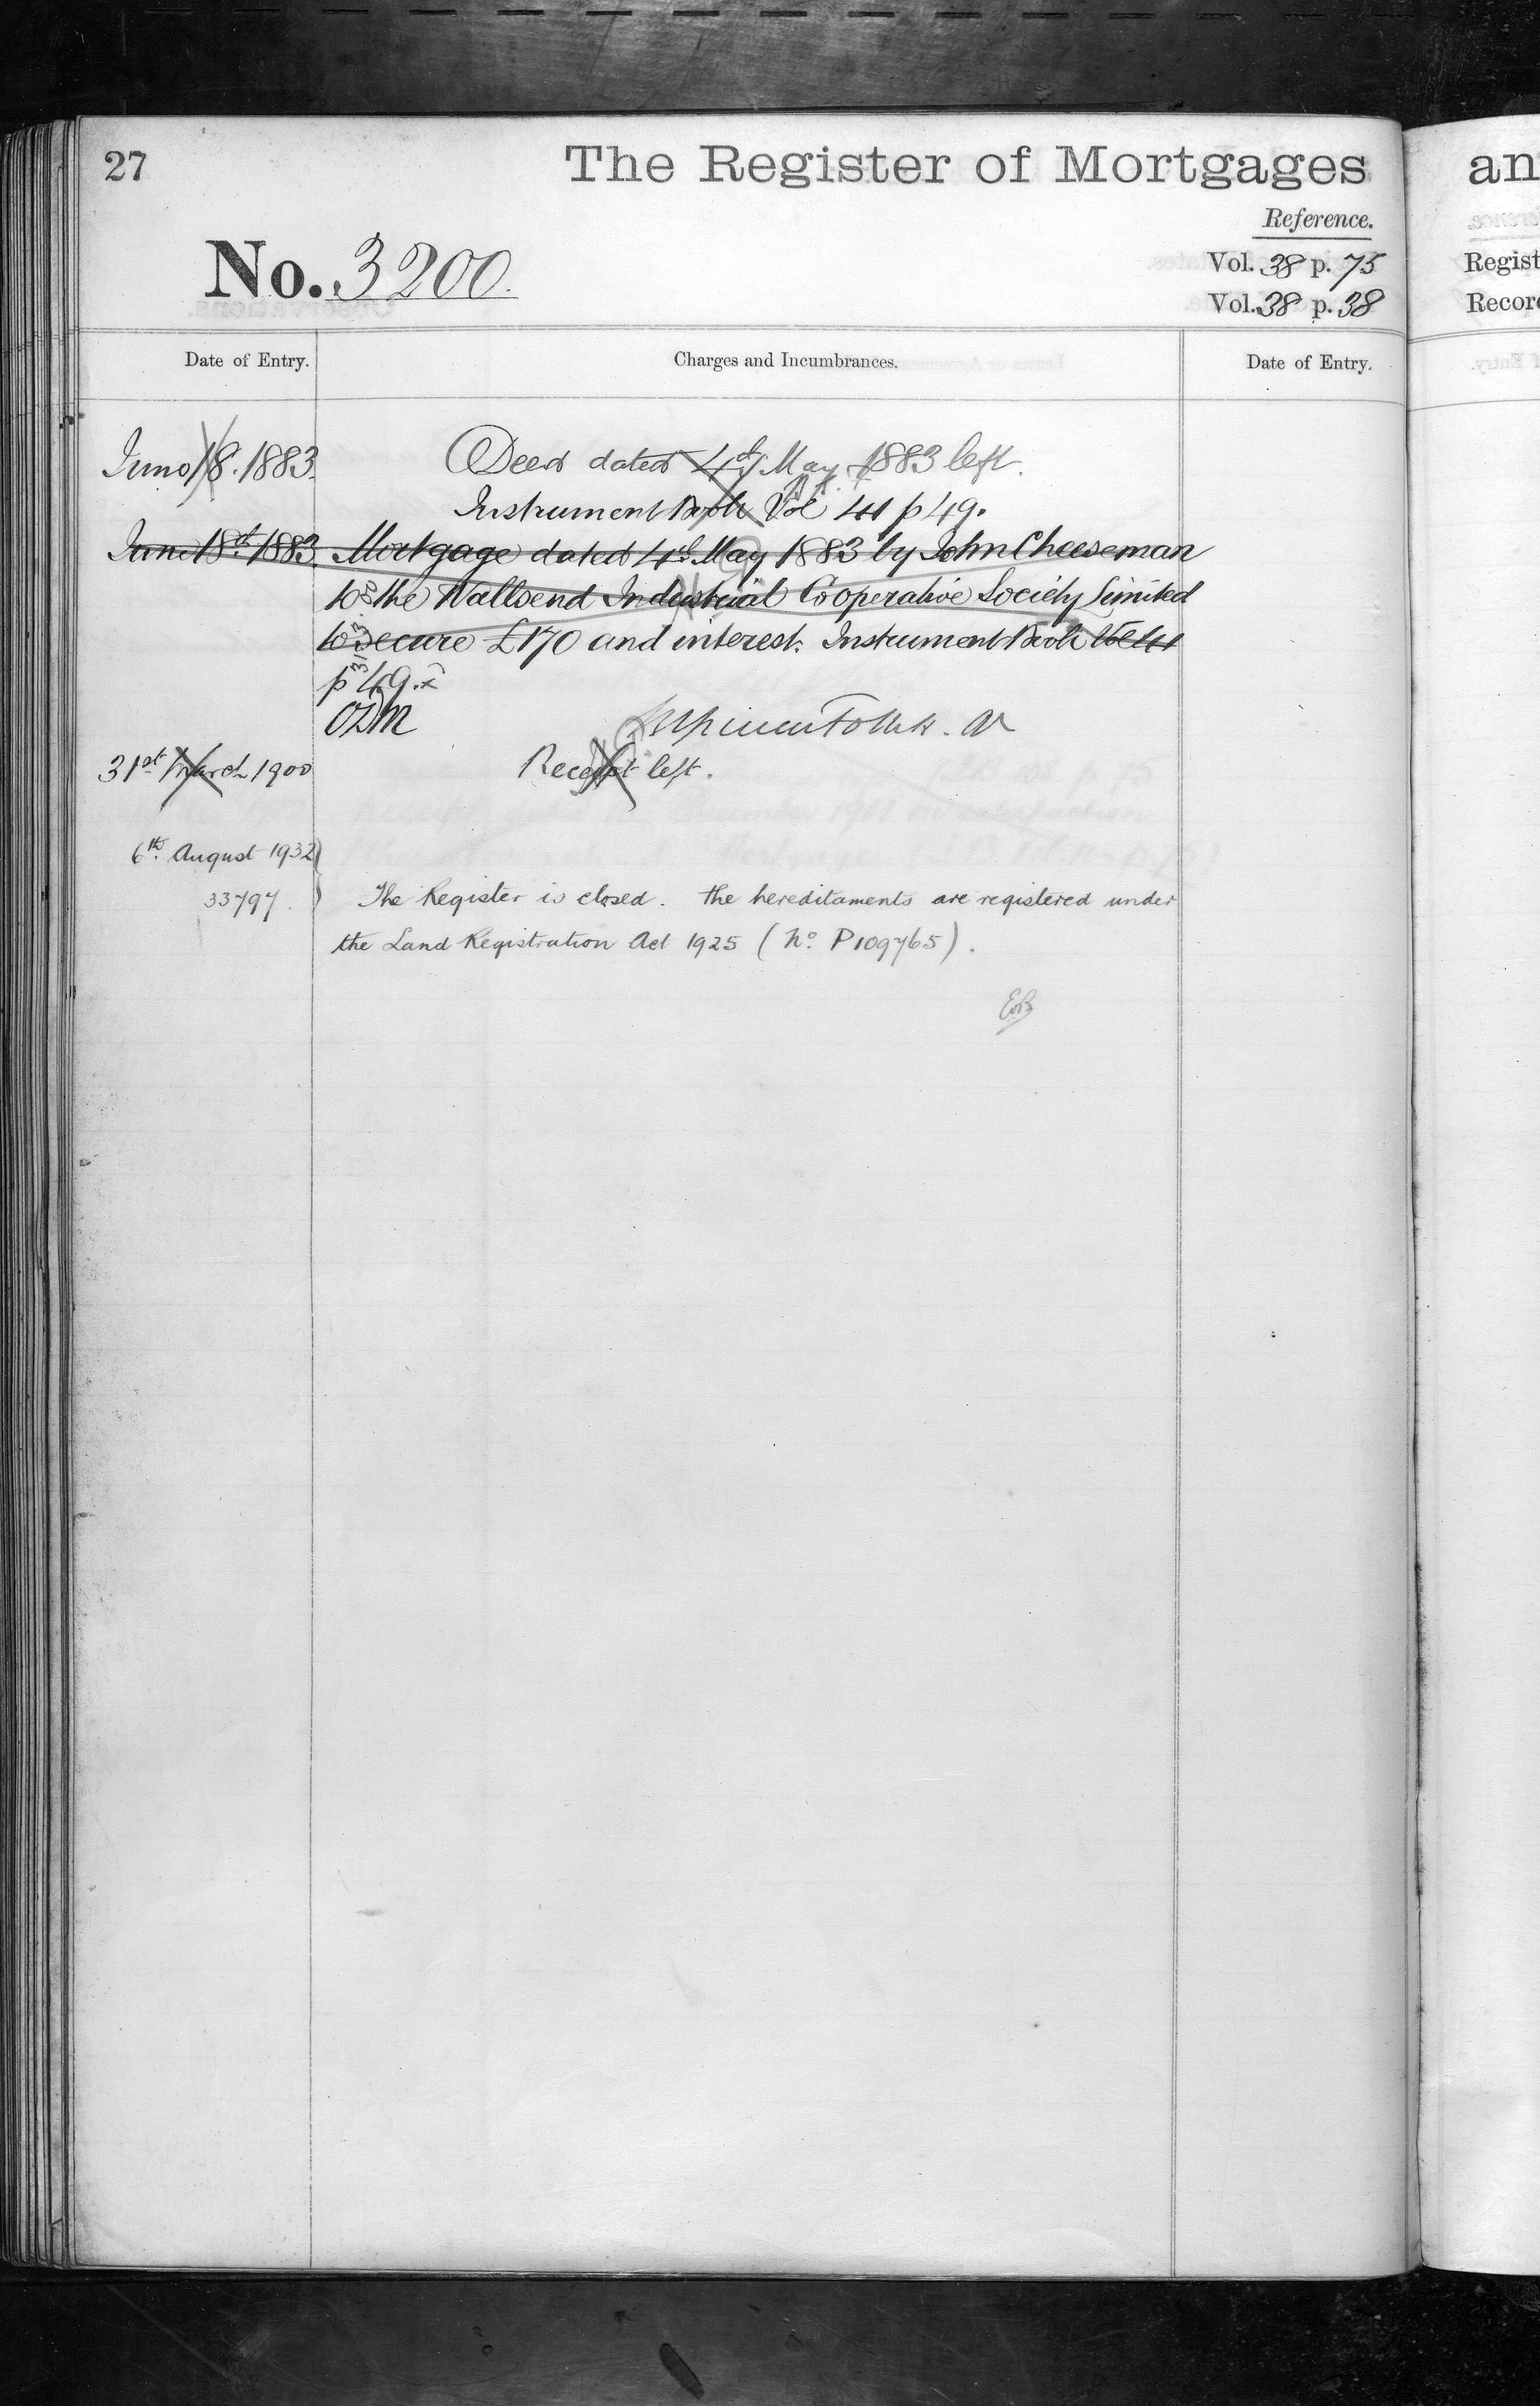 27
The Register of Mortgages
an
Reference.
No. 3200.
Vol. 38 p. 75
Regist
Vol. 38 p. 38
Record
Date of Entry.
Charges and Incumbrances.
Date of Entry.
June 18. 1883.
Deed dated 4th May 1883 left.
Instrument Book Vol 41 p 49.
June 18th 1883. Mortgage dated 4th May 1883 by John Cheeseman
to the Wallsend Industrial Cooperative Society Limited
to secure £170 and interest. Instrument Book Vol 41
p 49.
31st March 1900
Receipt left.
6th August 1932
33797.
The Register is closed. The hereditaments are registered under
the Land Registration Act 1925 (No P109765).